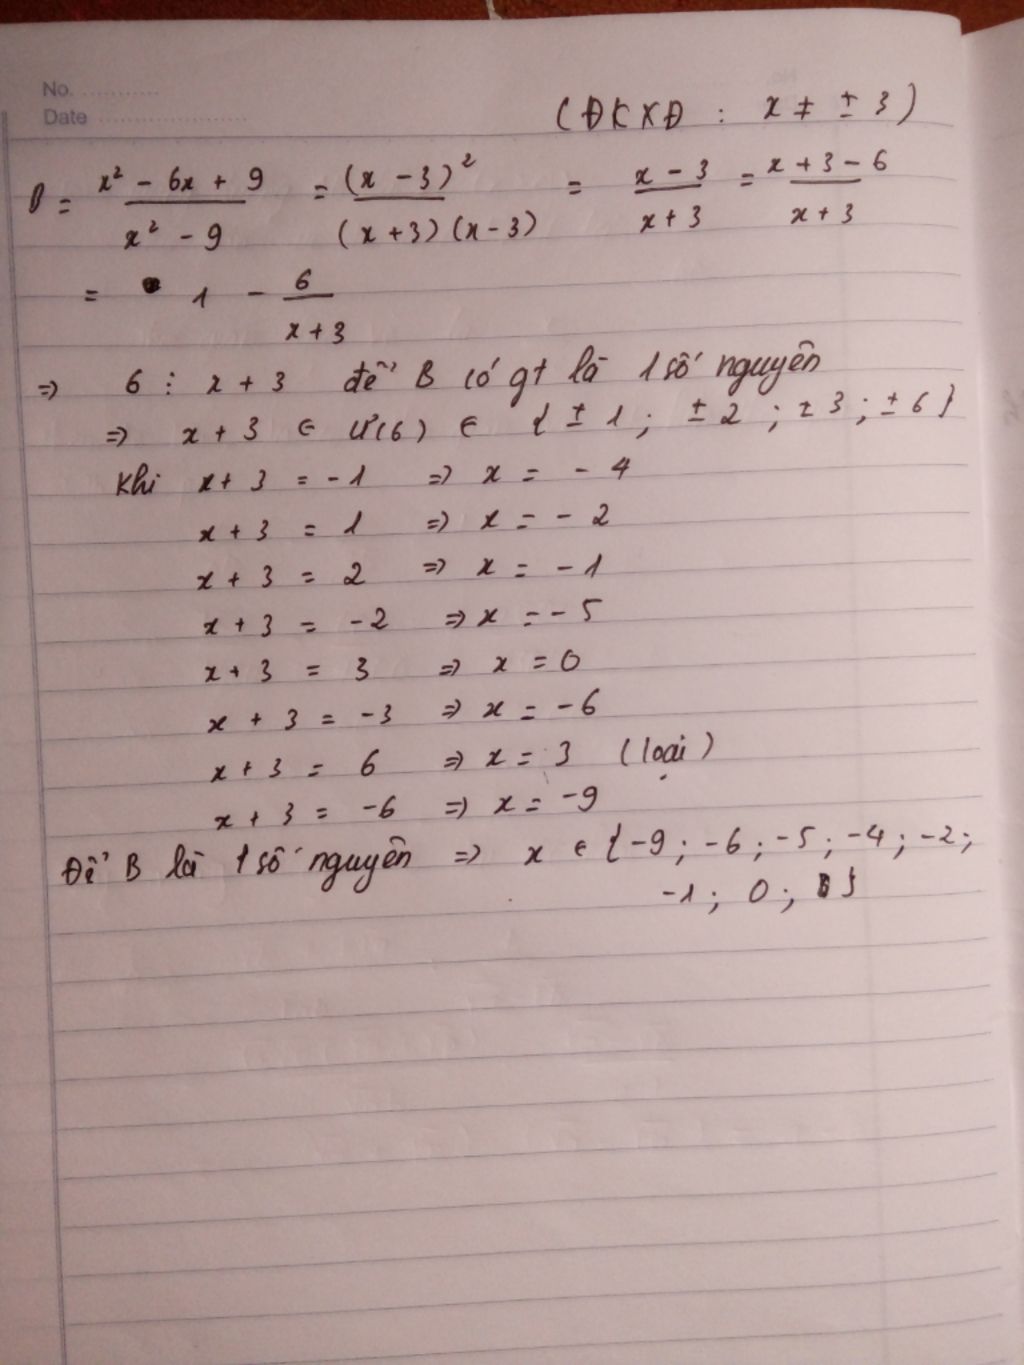 No. ............
Date .....................
(ĐKXĐ : x ≠ ± 3)
B = (x² - 6x + 9)/(x² - 9) = (x - 3)²/((x + 3)(x - 3)) = (x - 3)/(x + 3) = (x + 3 - 6)/(x + 3)
= 1 - 6/(x + 3)
=> 6 ⋮ x + 3 để B có gt là 1 số nguyên
=> x + 3 ∈ Ư(6) ∈ { ± 1 ; ± 2 ; ± 3 ; ± 6 }
Khi x + 3 = -1 => x = - 4
x + 3 = 1 => x = - 2
x + 3 = 2 => x = - 1
x + 3 = -2 => x = - 5
x + 3 = 3 => x = 0
x + 3 = -3 => x = -6
x + 3 = 6 => x = 3 (loại)
x + 3 = -6 => x = -9
Để B là 1 số nguyên => x ∈ { -9 ; -6 ; -5 ; -4 ; -2 ;
-1 ; 0 ; }